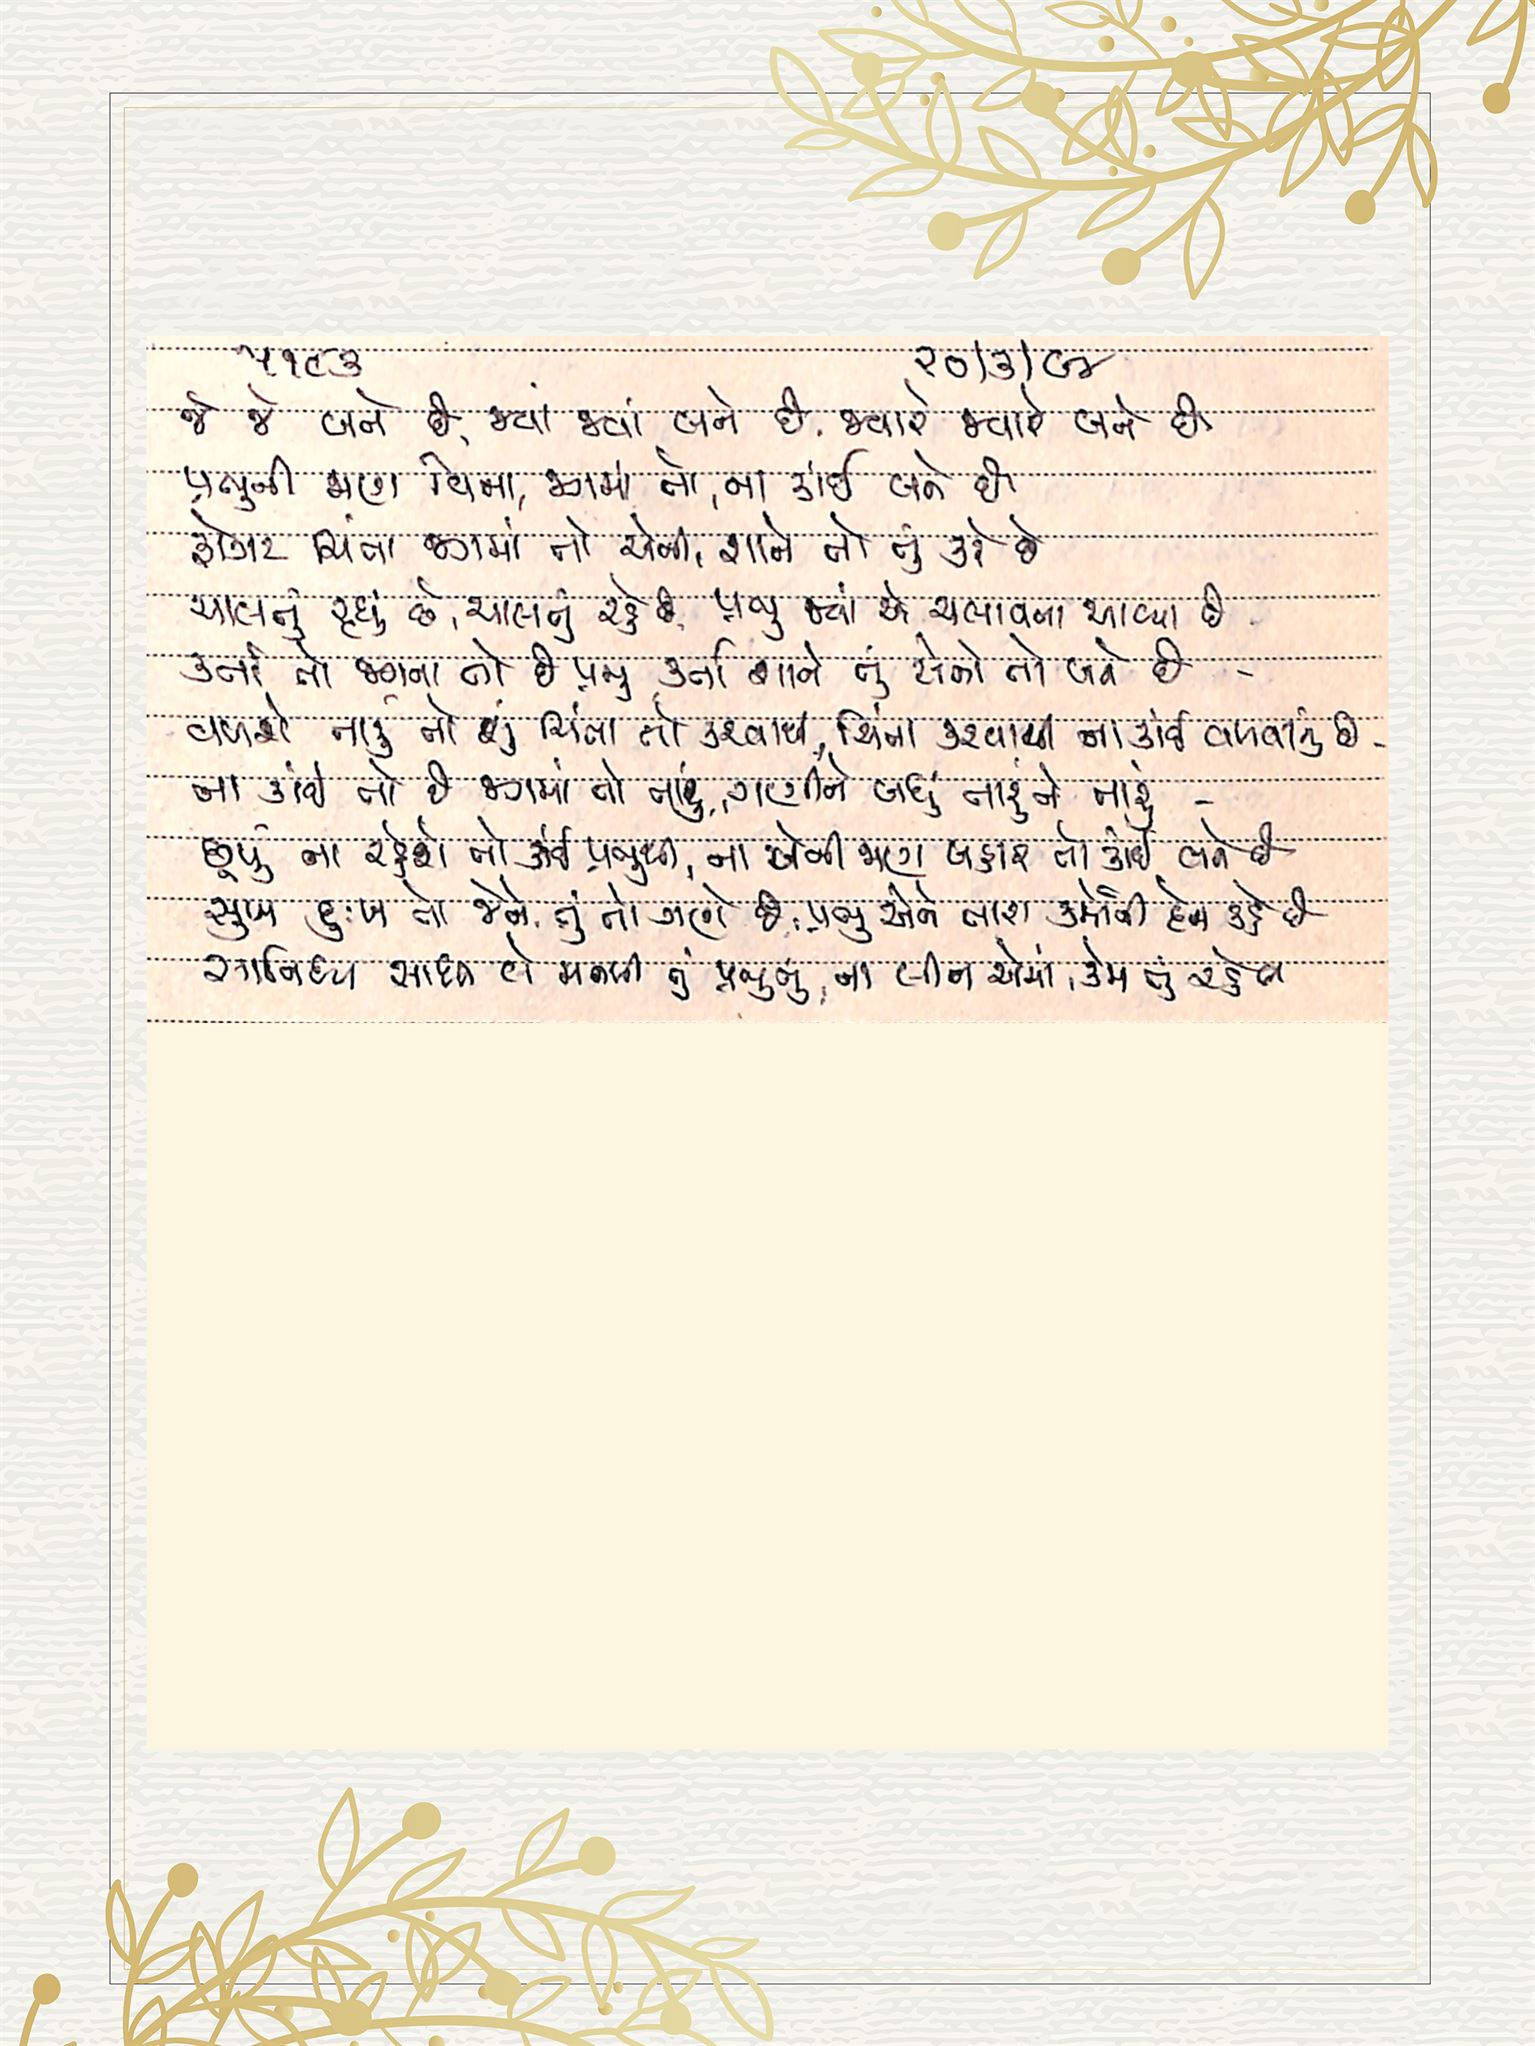 ૫૧૯૩ ૨૦/૩/૯૪
જે જે બને છે, જ્યાં જ્યાં બને છે, જ્યારે જ્યારે બને છે
પ્રભુની જાણ વિના, જગમાં તો, ના કાંઈ બને છે
ફોગટ ચિંતા જગમાં તો એની, શાને તો તું કરે છે
ચાલતું રહ્યું છે, ચાલતું રહે છે, પ્રભુ જ્યાં એ ચલાવતા આવ્યા છે
કર્તા તો જગના તો છે પ્રભુ કર્તા શાને તું એનો તો બને છે -
વળશે તારું તો શું ચિંતા તો કરવાથી, ચિંતા કરવાથી ના કાંઈ વળવાનું છે -
ના કાંઈ તો છે જગમાં તો તારું, ગણીને બધું તારું ને તારું -
છૂપું ના રહેશે તો કાંઈ પ્રભુથી, ના એની જાણ બહાર તો કાંઈ બને છે
સુખ દુઃખ તો જેને તું તો ગણે છે, પ્રભુ એને તારા કર્મોની દેન કહે છે
સાનિધ્ય સાધી લે મનથી તું પ્રભુનું, ના લીન એમાં, કેમ તું રહે